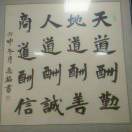 天道酬勤
地道酬善
人道酬誠
商道酬信
冬月
書